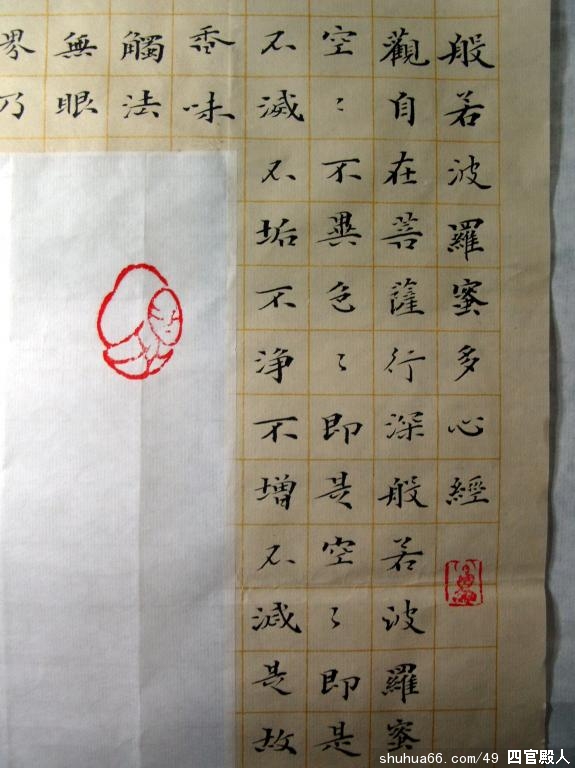 般若波羅蜜多心經
觀自在菩薩行深般若波羅蜜
空〻不異色〻即是空〻即是
不滅不垢不淨不增不減是故
香味
觸法
無眼
界乃
shuhua66.com/49 四官殿人